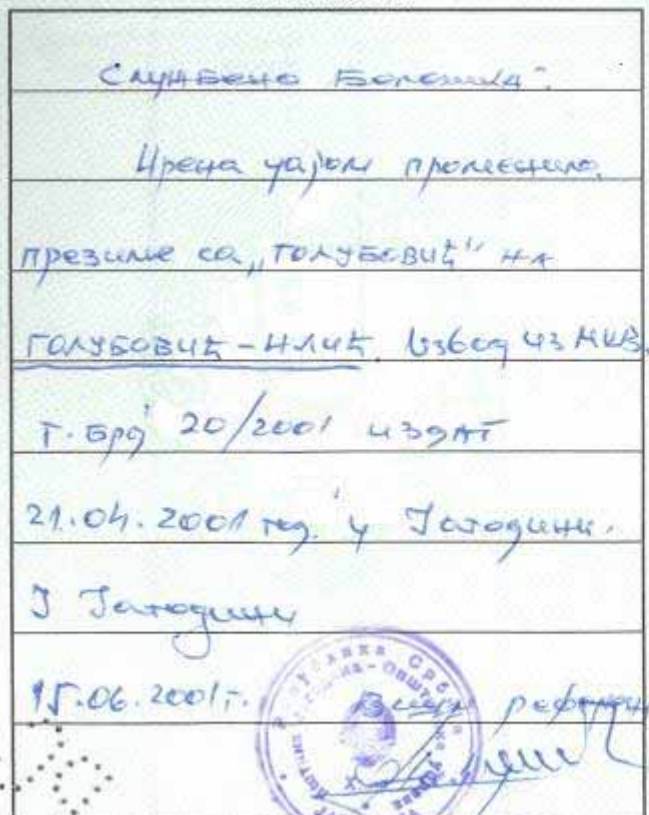 Службена Белешка:
Ирена удајом променила
презиме са „ГОЛУБОВИЋ" НА
ГОЛУБОВИЋ-ИЛИЋ. Извод из МКВ.
Т. Број 20/2001 издат
21.04.2001 год. у Јагодини.
У Јагодини
15.06.2001 г. Виши референт
Република Србија